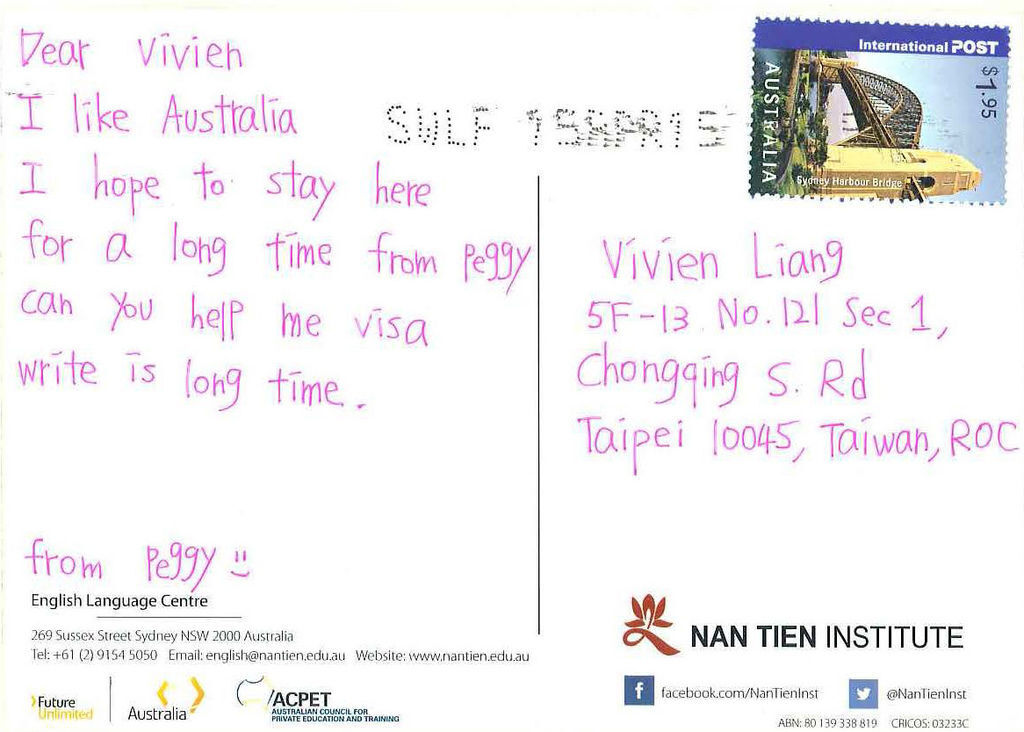 Dear Vivien
I like Australia
I hope to stay here
for a long time from Peggy
can you help me visa
write is long time.
from Peggy
English Language Centre
269 Sussex Street Sydney NSW 2000 Australia
Tel: +61 (2) 9154 5050 Email: english@nantien.edu.au Website: www.nantien.edu.au
Future
Unlimited
Australia
ACPET
AUSTRALIAN COUNCIL FOR
PRIVATE EDUCATION AND TRAINING
SWLF 15APR15
International POST
$1.95
AUSTRALIA
Sydney Harbour Bridge
Vivien Liang
5F-13 No.121 Sec 1,
Chongqing S. Rd
Taipei 10045, Taiwan, ROC
NAN TIEN INSTITUTE
facebook.com/NanTienInst
@NanTienInst
ABN: 80 139 338 819 CRICOS: 03233C